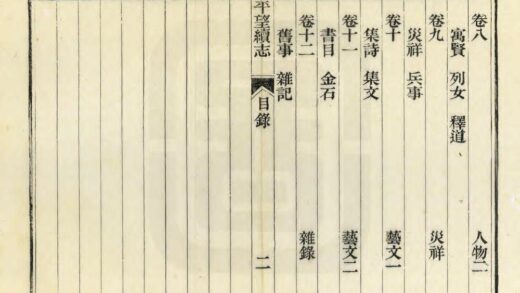 卷八 人物二
寓賢 列女 釋道
卷九 災祥
災祥 兵事
卷十 藝文一
集詩 集文
卷十一 藝文二
書目 金石
卷十二 雜錄
舊事 雜記
平望續志 目錄 二